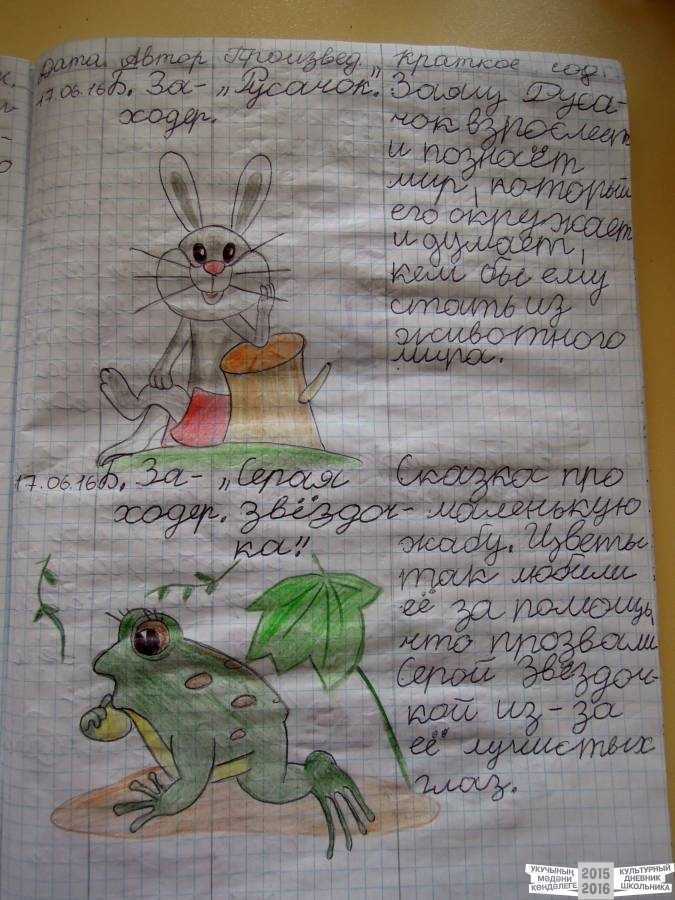 Дата Автор Произвед. Краткое сод.
17.06.16
Б. За-
ходер.
„Русачок."
Заяц Руса-
чок взрослеет
и познаёт
мир, который
его окружает
и думает,
кем бы ему
стать из
животного
мира.
17.06.16
Б. За-
ходер.
„Серая
звёздоч-
ка"
Сказка про
маленькую
жабу. Цветы
так любили
её за помощь,
что прозвали
Серой Звёздоч-
кой из-за
её лучистых
глаз.
УКУЧЫНЫҢ
МӘДӘНИ
КӨНДӘЛЕГЕ
2015
2016
КУЛЬТУРНЫЙ
ДНЕВНИК
ШКОЛЬНИКА